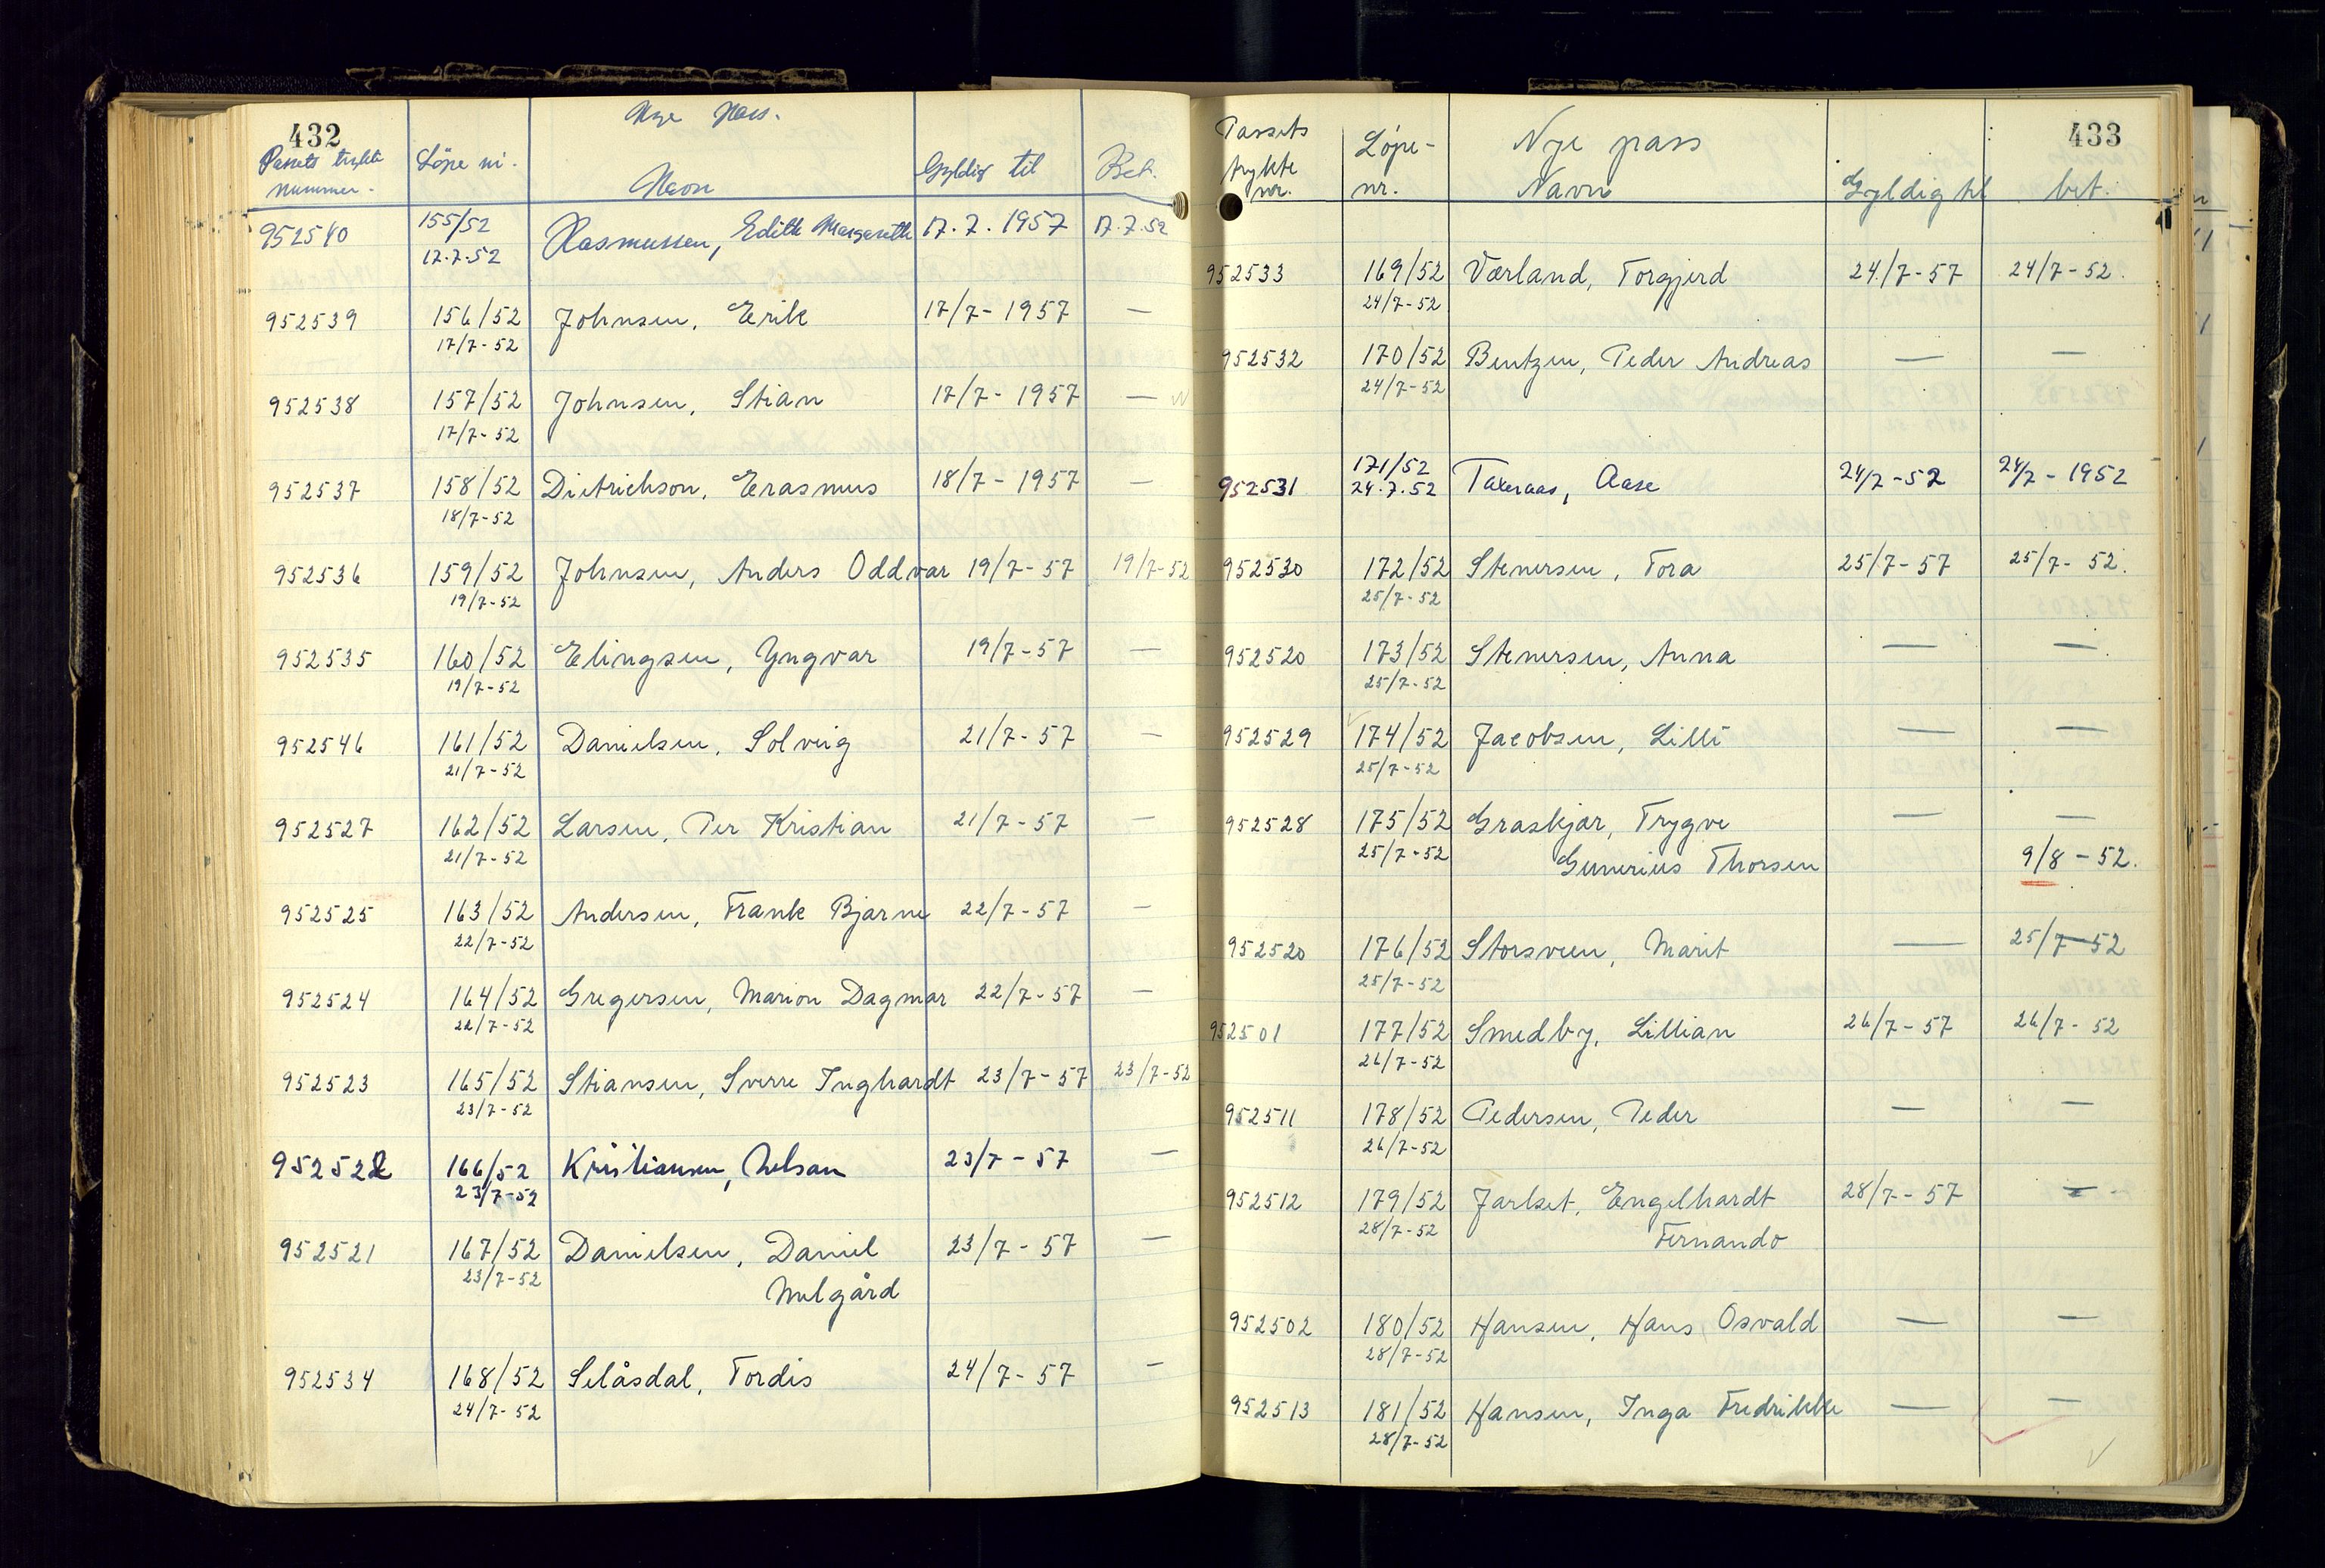 432
Nye Pass.
Passets trykte nummer. Löpe nr. Navn Gyldig til Bet.
952540 155/52 Rasmussen, Edith Margarethe 17.7.1957 17.7.52
17.7.52
952539 156/52 Johnsen, Erik 17/7-1957 —
17/7-52
952538 157/52 Johnsen, Stian 17/7-1957 —
17/7-52
952537 158/52 Dietrichson, Erasmus 18/7-1957 —
18/7-52
952536 159/52 Johnsen, Anders Oddvar 19/7-57 19/7-52
19/7-52
952535 160/52 Elingsen, Yngvar 19/7-57 —
19/7-52
952546 161/52 Danielsen, Solveig 21/7-57 —
21/7-52
952527 162/52 Larsen, Per Kristian 21/7-57 —
21/7-52
952525 163/52 Andersen, Frank Bjarne 22/7-57 —
22/7-52
952524 164/52 Gregersen, Marion Dagmar 22/7-57 —
22/7-52
952523 165/52 Stiansen, Sverre Inghardt 23/7-57 23/7-52
23/7-52
952522 166/52 Kristiansen, Nelson 23/7-57 —
23/7-52
952521 167/52 Danielsen, Daniel 23/7-57 —
23/7-52 Melgård
952534 168/52 Selåsdal, Tordis 24/7-57 —
24/7-52
433
Passets trykte nr. Löpe-nr. Nye pass Navn Gyldig til bet.
952533 169/52 Værland, Torgjerd 24/7-57 24/7-52.
24/7-52
952532 170/52 Bentzen, Peder Andreas — —
24/7-52
952531 171/52 Takeraas, Aase 24/7-52 24/7-1952
24.7.52
952530 172/52 Stenersen, Tora 25/7-57 25/7-52.
25/7-52
952520 173/52 Stenersen, Anna — —
25/7-52
952529 174/52 Jacobsen, Lilli — —
25/7-52
952528 175/52 Graskjær, Trygve — —
25/7-52 Gunerius Thorsen 9/8-52.
952520 176/52 Storsveen, Marit — 25/7-52
25/7-52
952501 177/52 Smedby, Lillian 26/7-57 26/7-52
26/7-52
952511 178/52 Pedersen, Peder — —
26/7-52
952512 179/52 Jarlset, Engelhardt 28/7-57 —
28/7-52 Fernando
952502 180/52 Hansen, Hans Osvald — —
28/7-52
952513 181/52 Hansen, Inga Fredrikke — —
28/7-52